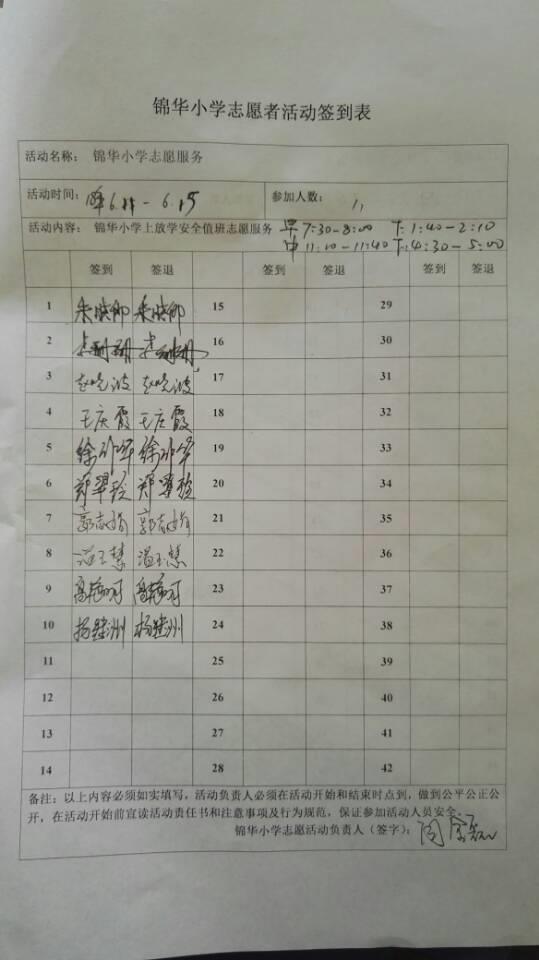 锦华小学志愿者活动签到表
活动名称: 锦华小学志愿服务
活动时间: 6.11 - 6.15 参加人数:
活动内容: 锦华小学上放学安全值班志愿服务 早 7:30-8:00 下:1:40-2:10
中 11:10-11:40 下:4:30-5:00
签到 签退 签到 签退 签到 签退
1 15 29
2 16 30
3 赵晓波 赵晓波 17 31
4 王庆霞 王庆霞 18 32
5 19 33
6 郑翠玲 郑翠玲 20 34
7 郭志娟 郭志娟 21 35
8 温玉慧 温玉慧 22 36
9 23 37
10 杨继洲 杨继洲 24 38
11 25 39
12 26 40
13 27 41
14 28 42
备注: 以上内容必须如实填写, 活动负责人必须在活动开始和结束时点到, 做到公平公正公
开, 在活动开始前宣读活动责任书和注意事项及行为规范, 保证参加活动人员安全。
锦华小学志愿活动负责人 (签字):